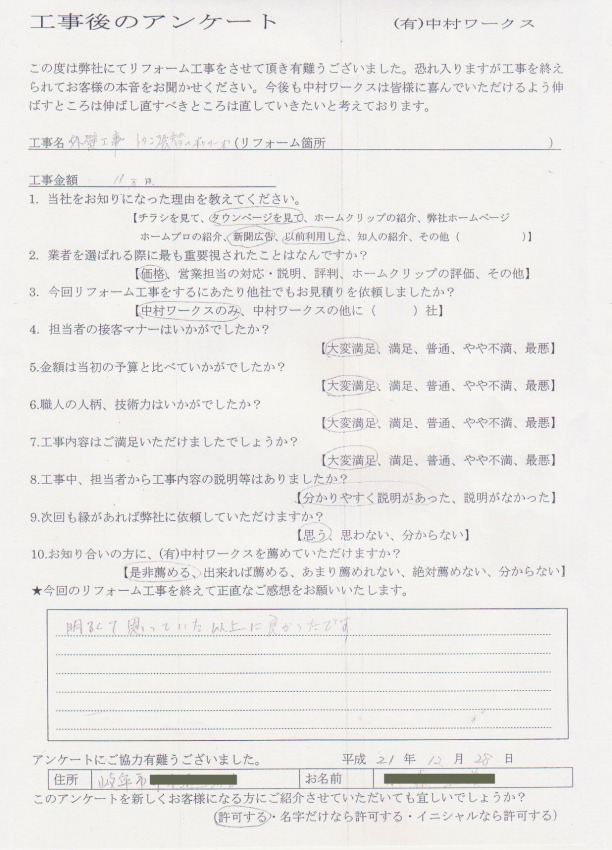 工事後のアンケート (有)中村ワークス
この度は弊社にてリフォーム工事をさせて頂き有難うございました。恐れ入りますが工事を終え
られてお客様の本音をお聞かせください。今後も中村ワークスは皆様に喜んでいただけるよう伸
ばすところは伸ばし直すべきところは直していきたいと考えております。
工事名 外壁工事 (リフォーム箇所 )
工事金額
1. 当社をお知りになった理由を教えてください。
【チラシを見て、タウンページを見て、ホームクリップの紹介、弊社ホームページ
ホームプロの紹介、新聞広告、以前利用した、知人の紹介、その他（ ）】
2. 業者を選ばれる際に最も重要視されたことはなんですか？
【価格、営業担当の対応・説明、評判、ホームクリップの評価、その他】
3. 今回リフォーム工事をするにあたり他社でもお見積りを依頼しましたか？
【中村ワークスのみ、中村ワークスの他に（ ）社】
4. 担当者の接客マナーはいかがでしたか？
【大変満足、満足、普通、やや不満、最悪】
5.金額は当初の予算と比べていかがでしたか？
【大変満足、満足、普通、やや不満、最悪】
6.職人の人柄、技術力はいかがでしたか？
【大変満足、満足、普通、やや不満、最悪】
7.工事内容はご満足いただけましたでしょうか？
【大変満足、満足、普通、やや不満、最悪】
8.工事中、担当者から工事内容の説明等はありましたか？
【分かりやすく説明があった、説明がなかった】
9.次回も縁があれば弊社に依頼していただけますか？
【思う、思わない、分からない】
10.お知り合いの方に、(有)中村ワークスを薦めていただけますか？
【是非薦める、出来れば薦める、あまり薦めれない、絶対薦めない、分からない】
★今回のリフォーム工事を終えて正直なご感想をお願いいたします。
明るくて思っていた以上に良かったです
アンケートにご協力有難うございました。 平成 21 年 12 月 28 日
住所 岐阜市 お名前
このアンケートを新しくお客様になる方にご紹介させていただいても宜しいでしょうか？
(許可する・名字だけなら許可する・イニシャルなら許可する)